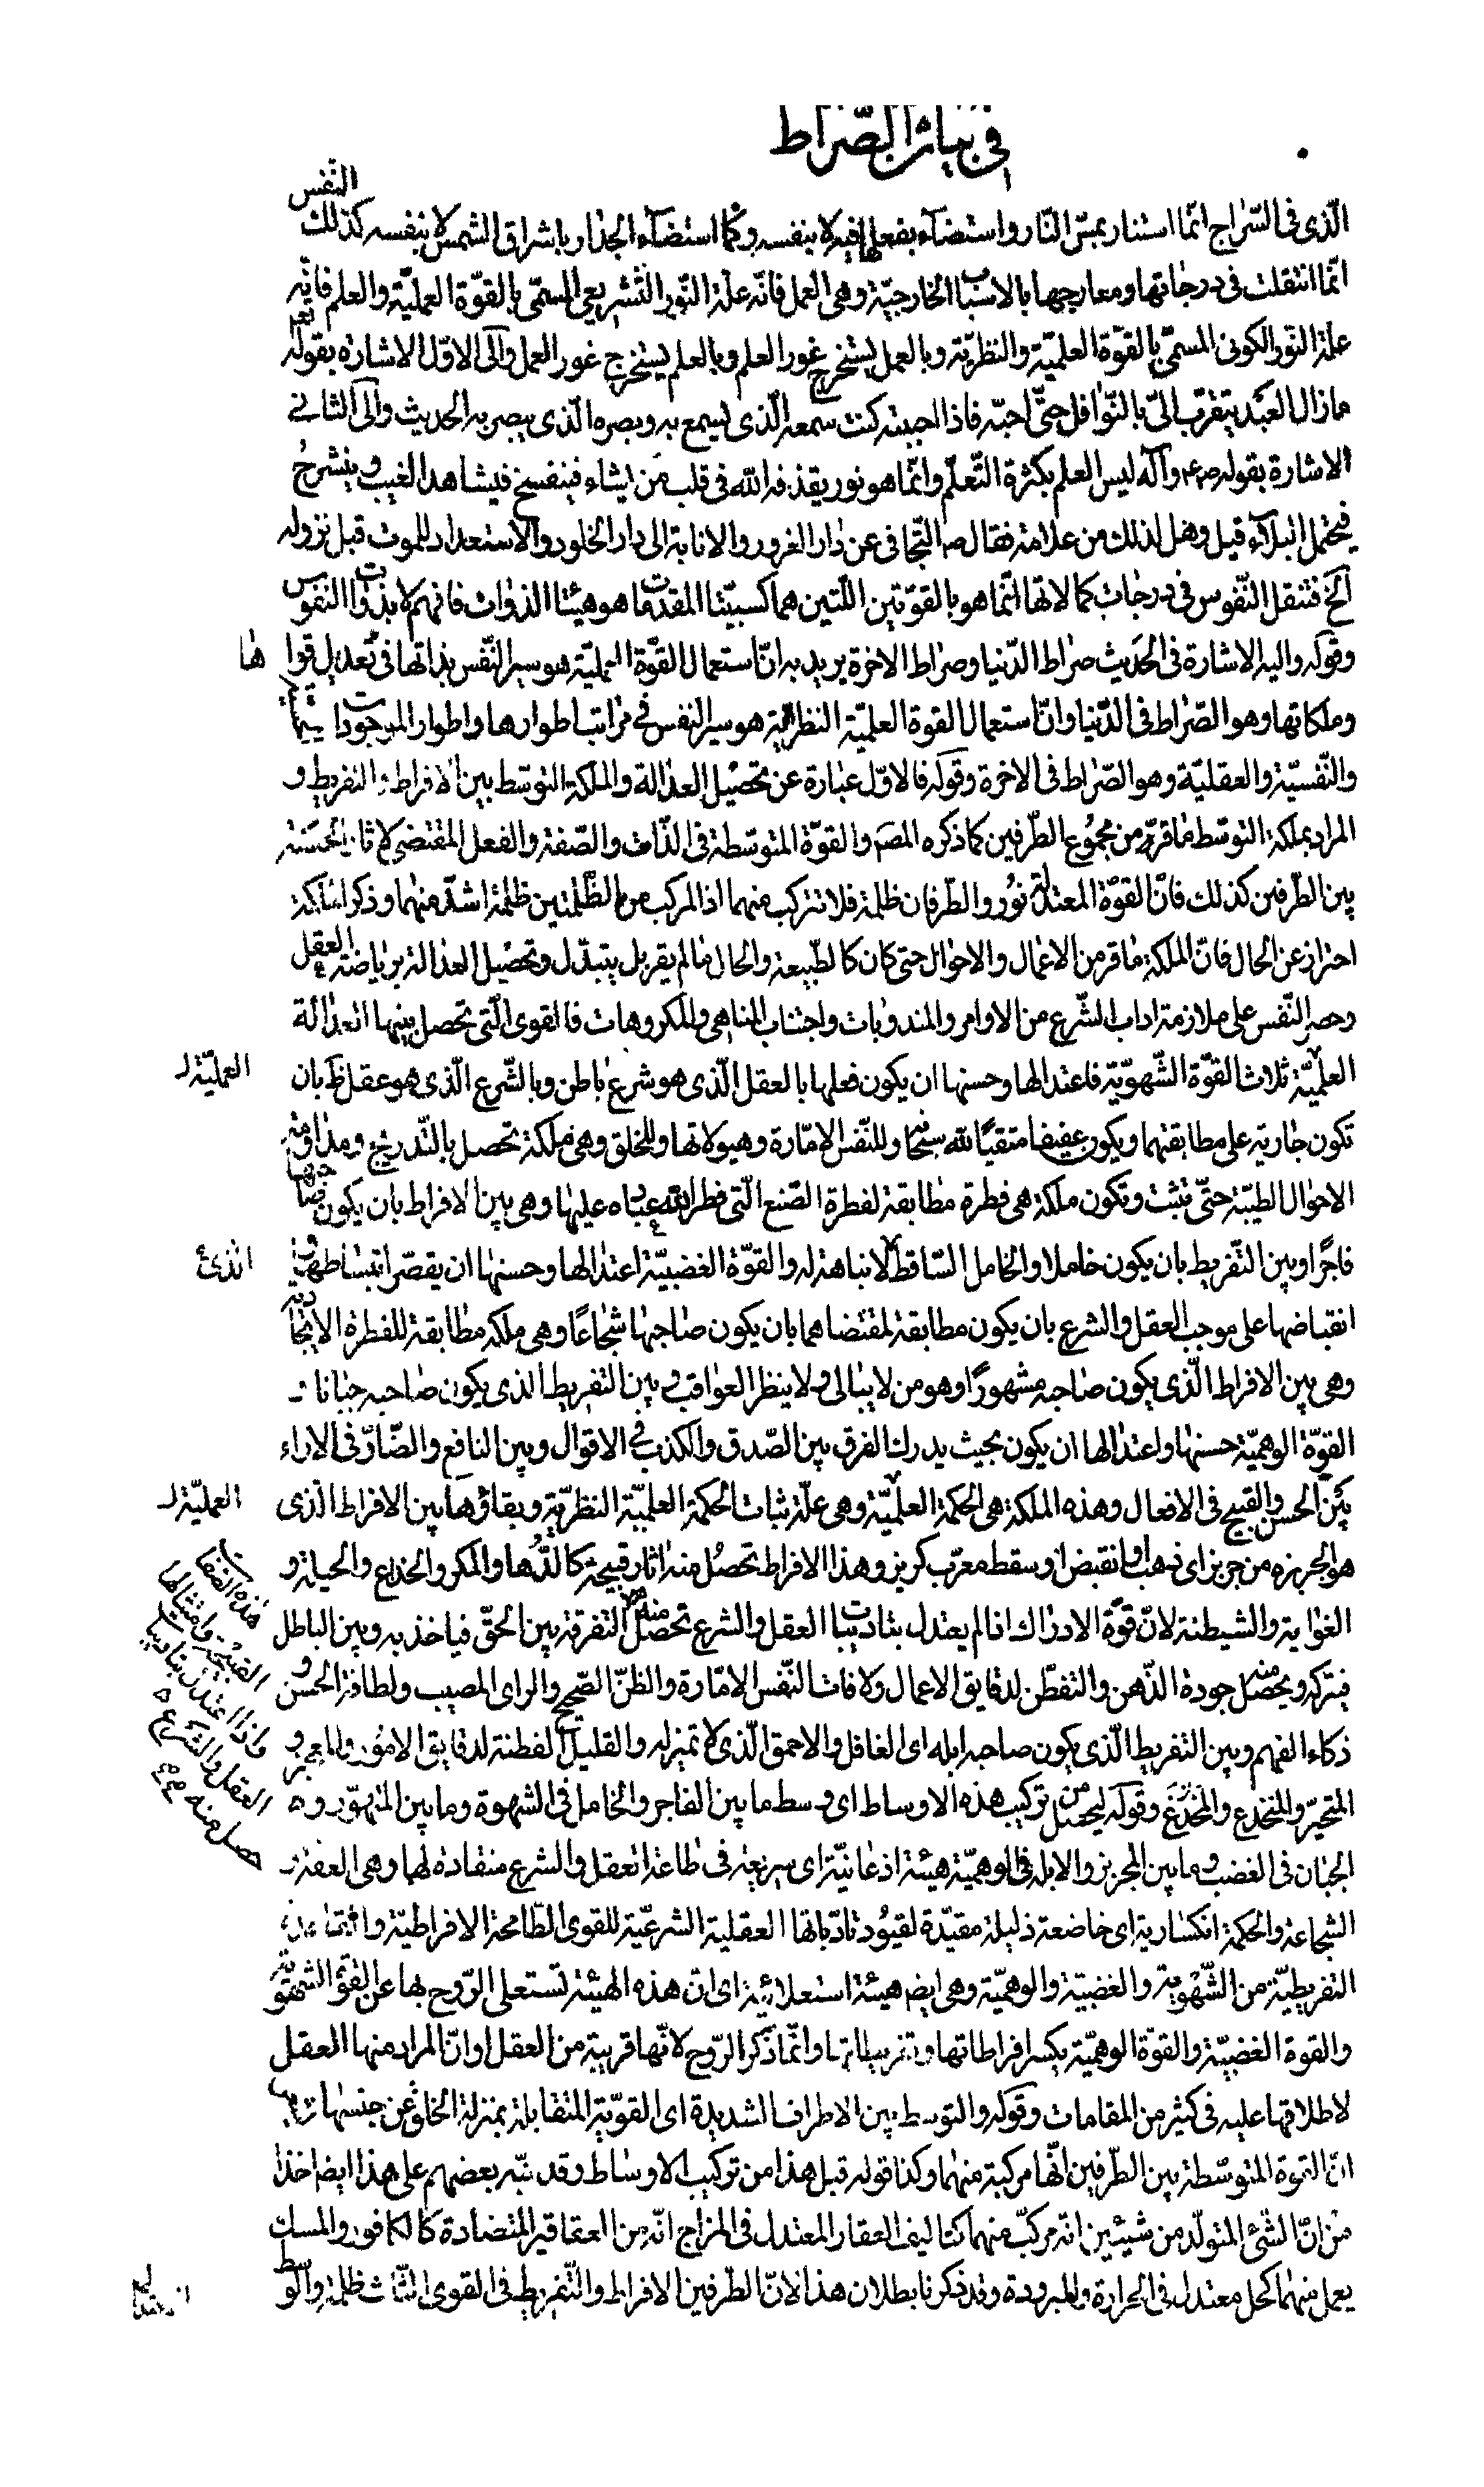 في بيان الصراط
الّذى فى السّراج انّما استنار بمسّ النّار واستضآء بفعلها فيه لا بنفسه وكما استضآء الجدار باشراق الشمس لا بنفسه كذلك النّفس
انّما انتقلت فى درجاتها ومعارجها بالاسباب الخارجيّة وهى العمل فانّه علة النّور التشريعى المسمّى بالقوّة العمليّة والعلم فانّه
علة النّور الكونى المسمّى بالقوّة العلميّة والنظريّة وبالعمل يستخرج غور العلم وبالعلم يستخرج غور العمل والى الاوّل الاشارة بقوله تعالى
مازال العبد يتقرّب الىّ بالنّوافل حتّى احبّه فاذا احببته كنت سمعه الّذى يسمع به وبصره الّذى يبصر به الحديث والى الثانى
الاشارة بقوله ص وآله ليس العلم بكثرة التّعلّم وانّما هو نور يقذفه الله فى قلب من يشاء فينفسح فيشاهد الغيب وينشرح
فيحتمل البلآء قيل وهل لذلك من علامة فقال ص التّجافى عن دار الغرور والانابة الى دار الخلود والاستعداد للموت قبل نزوله
الخ فتنقل النّفوس فى درجات كمالاتها انّما هو بالقوّتين اللّتين هما كسبيّتا المقدمات ما هو هيئتا الذوات فانهم لا بذوات النفوس
وقوله واليه الاشارة فى الحديث صراط الدّنيا وصراط الاخرة يريد به انّ استعمال القوّة العمليّة هو سير النّفس بذاتها فى تعديل قواها
وملكاتها وهو الصّراط فى الدّنيا وانّ استعمال القوة العلميّة النظريّة هو سير النفس فى مراتب اطوارها واطوار الموجودات
والنّفسيّة والعقليّة وهو الصّراط فى الاخرة وقوله فالاوّل عبارة عن تحصيل العدالة والملكة التوسّط بين الافراط والتفريط و
المراد بملكة التوسّط ما قرّر من مجموع الطّرفين كما ذكره المصـ والقوّة المتوسّطة فى الذّات والصّفة والفعل المقتضى
بين الطّرفين كذلك فانّ القوّة المعتدلة نور والطّرفان ظلمة فلا تتركب منهما اذ المركب من الظّلمتين ظلمة اشدّ منهما وذكر الملكة
احتراز عن الحال فانّ الملكة ما قر من الاعمال والاحوال حتى كان كالطّبيعة والحال ما لم يقر بل يتبدّل وتحصيل العدالة برياضة العقل
وحصر النّفس على ملازمة اداب الشّرع من الاوامر والمندوبات واجتناب المناهى والمكروهات فالقوى الّتى تحصل بينها العدالة
العمليّة ثلاث القوّة الشّهويّة فاعتدالها وحسنها ان يكون فعلها بالعقل الّذى هو شرع باطن وبالشّرع الّذى هو عقل ظ بان
تكون جارية على مطابقتهما ويكون عفيفا متقيًا لله سبحانه وللنّفس الامّارة وهيولاتها وللخلق وهى ملكة تحصل بالتّدريج ومداومة
الاحوال الطيّبة حتّى تثبت وتكون ملكة هى فطرة مطابقة لفطرة الصّنع الّتى فطر الله عباده عليها وهى بين الافراط بان يكون صاحبها
فاجرًا وبين التّفريط بان يكون خاملا والخامل السّاقط الّذى لا نباهة له والقوّة الغضبيّة اعتدالها وحسنها ان يقصّر انبساطها و
انقباضها على موجب العقل والشرع بان يكون مطابقة لمقتضاهما بان يكون صاحبها شجاعًا وهى ملكة مطابقة للفطرة الايجادية
وهى بين الافراط الّذى يكون صاحبه متهورًا وهو من لا يبالى ولا ينظر العواقب وبين التفريط الذى يكون صاحبه جبانا و
القوّة الوهميّة حسنها واعتدالها ان يكون بحيث يدرك الفرق بين الصّدق والكذب فى الاقوال وبين النافع والضّارّ فى الاراء
بين الحسن والقبيح فى الافعال وهذه الملكة هى الحكمة العمليّة وهى علّة ثبات الحكمة العلميّة النظريّة وبقاؤها بين الافراط الّذى
هو الجربزه من جربز اى ذهب او انقبض او سقط معرّب كربز وهذا الافراط تحصل منه اثار قبيحة كالدّهاء والمكر والخداع والحيلة و
الغواية والشيطنة لانّ قوّة الادراك اذا لم يعتدل بتاديبات العقل والشرع تحصل منه هذه القبيحة وامثالها واذا اعتدل بتاديبات العقل والشرع حصل منه التفرقة بين الحقّ فياخذ به وبين الباطل
فيتركه ويحصل منه جودة الذّهن والتفطّن لدقايق الاعمال ولافات النّفس الامّارة والظنّ الصّحيح والراى المصيب ولطافة الحسن و
ذكاء الفهم وبين التفريط الّذى يكون صاحبه ابله اى الغافل والاحمق الّذى لا تميز له والقليل الفطنة لدقايق الامور والمعجز و
المتحيّر والمنخدع وقوله ليحصل من تركيب هذه الاوساط اى وسط ما بين الفاجر والخامل فى الشهوة وما بين المتهوّر و
الجبان فى الغضب وما بين الجربز والابله فى الوهميّة هيئة اذعانيّة اى سريعة فى طاعة العقل والشرع منقادة لها وهى العفة و
الشجاعة والحكمة انكسارية اى خاضعة ذليلة مقيّدة لقيود تادّباتها العقلية الشرعيّة للقوى الطّامحة الافراطيّة
التفريطيّة من الشّهويّة والغضبيّة والوهميّة وهى ايضـ هيئة استعلائيّة اى ان هذه الهيئة تستعلى الرّوح بها عن القوّة الشهويّة
والقوة الغضبيّة والقوّة الوهميّة بكسر افراطاتها وتفريطاتها وانّما ذكر الرّوح لانّها قريبة من العقل او انّ المراد منها العقل
لاطلاقها عليه فى كثير من المقامات وقوله والتوسط بين الاطراف الشديدة اى القويّة المتقابلة بمنزلة الخلوّ عن جنسها
انّ القوة المتوسّطة بين الطّرفين انّها مركبة منهما وكذا قوله قبل هذا من تركيب الاوساط وقد نبّه بعضهم على هذا ايضـ اخذا
من انّ الشّئ المتولّد من شيئين انّه مركّب منهما كتاليف العقار المعتدل فى المزاج انّه من العقاقير المتضادة كالكافور والمسك
يعمل منهما كحل معتدل فى الحرارة والبرودة وقد ذكرنا بطلان هذا لانّ الطّرفين الافراط والتّفريط فى القوى الثلث ظلمة والوسط